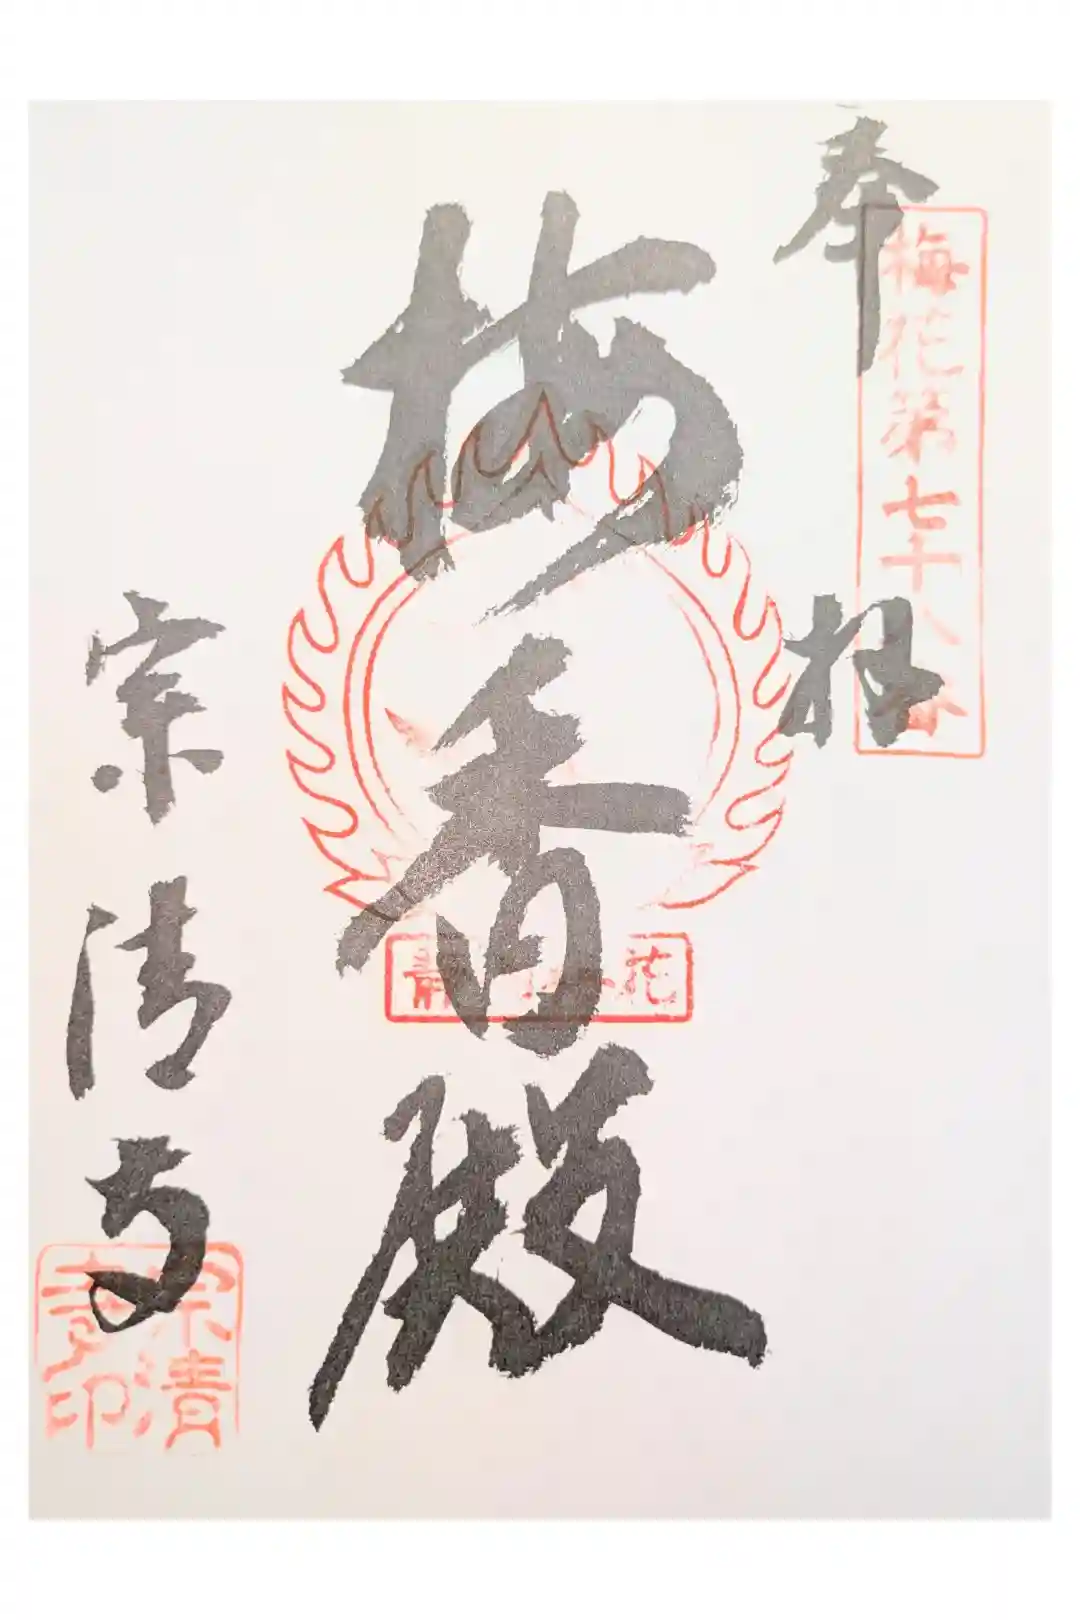 奉拝
梅花第七十八番
梅香殿
花
宗清寺
宗清
寺印